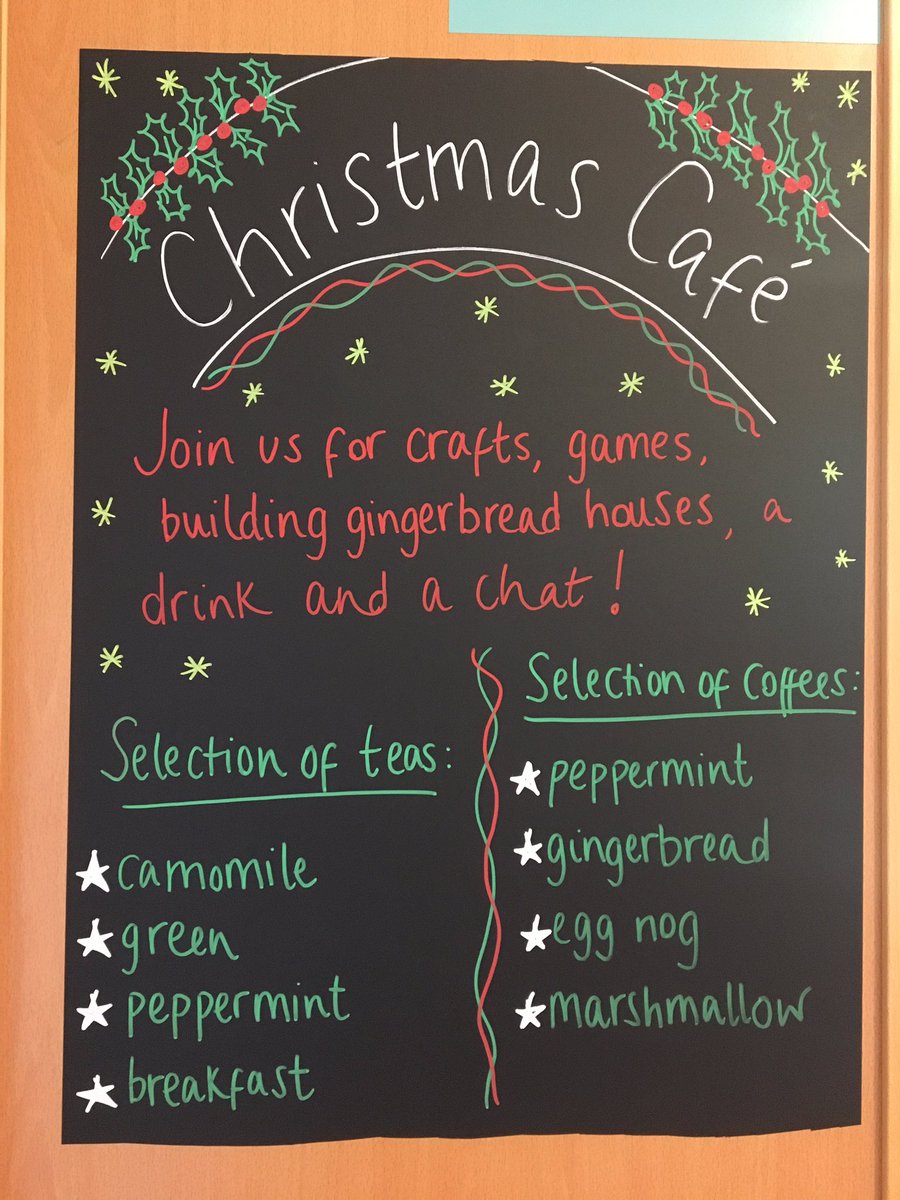 Christmas Café
Join us for crafts, games,
building gingerbread houses, a
drink and a chat!
Selection of teas:
camomile
green
peppermint
breakfast
Selection of Coffees:
peppermint
gingerbread
egg nog
marshmallow